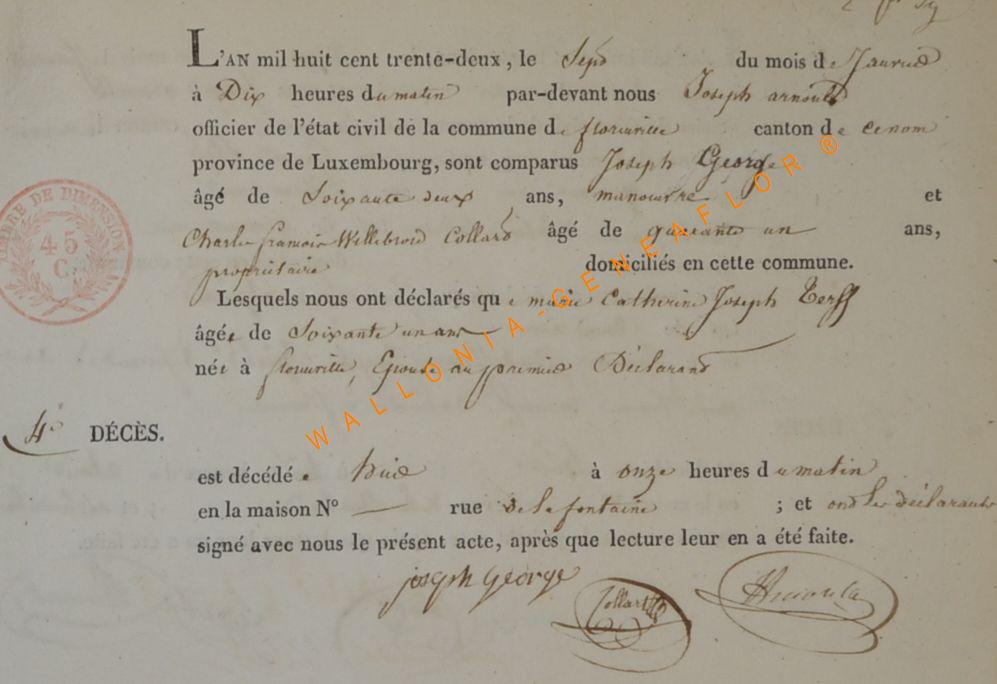 L'AN mil huit cent trente-deux, le Sept du mois de Janvier
à Dix heures du matin par-devant nous Joseph arnould
officier de l'état civil de la commune de florenville canton de
province de Luxembourg, sont comparus Joseph George
âgé de Soixante deux ans, manoeuvre et
Charles francois Willebrord Collard âgé de quarante un ans,
propriétaire domiciliés en cette commune.
Lesquels nous ont déclarés que marie Catherine Joseph
âgée de Soixante un ans
née à florenville, Epouse au premier Déclarant
4e DÉCÈS.
est décédée hier à onze heures du matin
en la maison N° — rue de la fontaine ; et ont les déclarants
signé avec nous le présent acte, après que lecture leur en a été faite.
joseph George
Collart
TIMBRE DE DIMENSION
45
C.
WALLONIA-GENEAFLOR ®